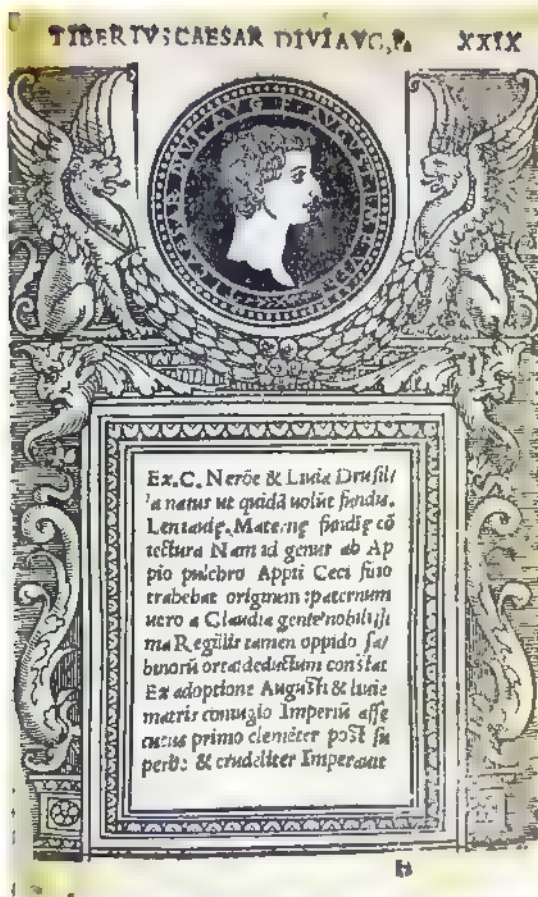 TIBERTVS CAESAR DIVI AVG, P. XXIX
Ex.C. Nerõe & Liuia Drusil/
la natus ut quidã uolũt fundis.
Materne fundis cõ
iectura Nam id genus ab Ap
pio pulchro Appii Ceci filio
trahebat originem : paternum
uero a Claudia gente nobilissi
ma Regillis tamen oppido sa/
binorũ orta deductum constat
Ex adoptione Augusti & liuie
matris coniugio Imperiũ asse
cutus primo clemẽter post su
perbe & crudeliter Imperauit